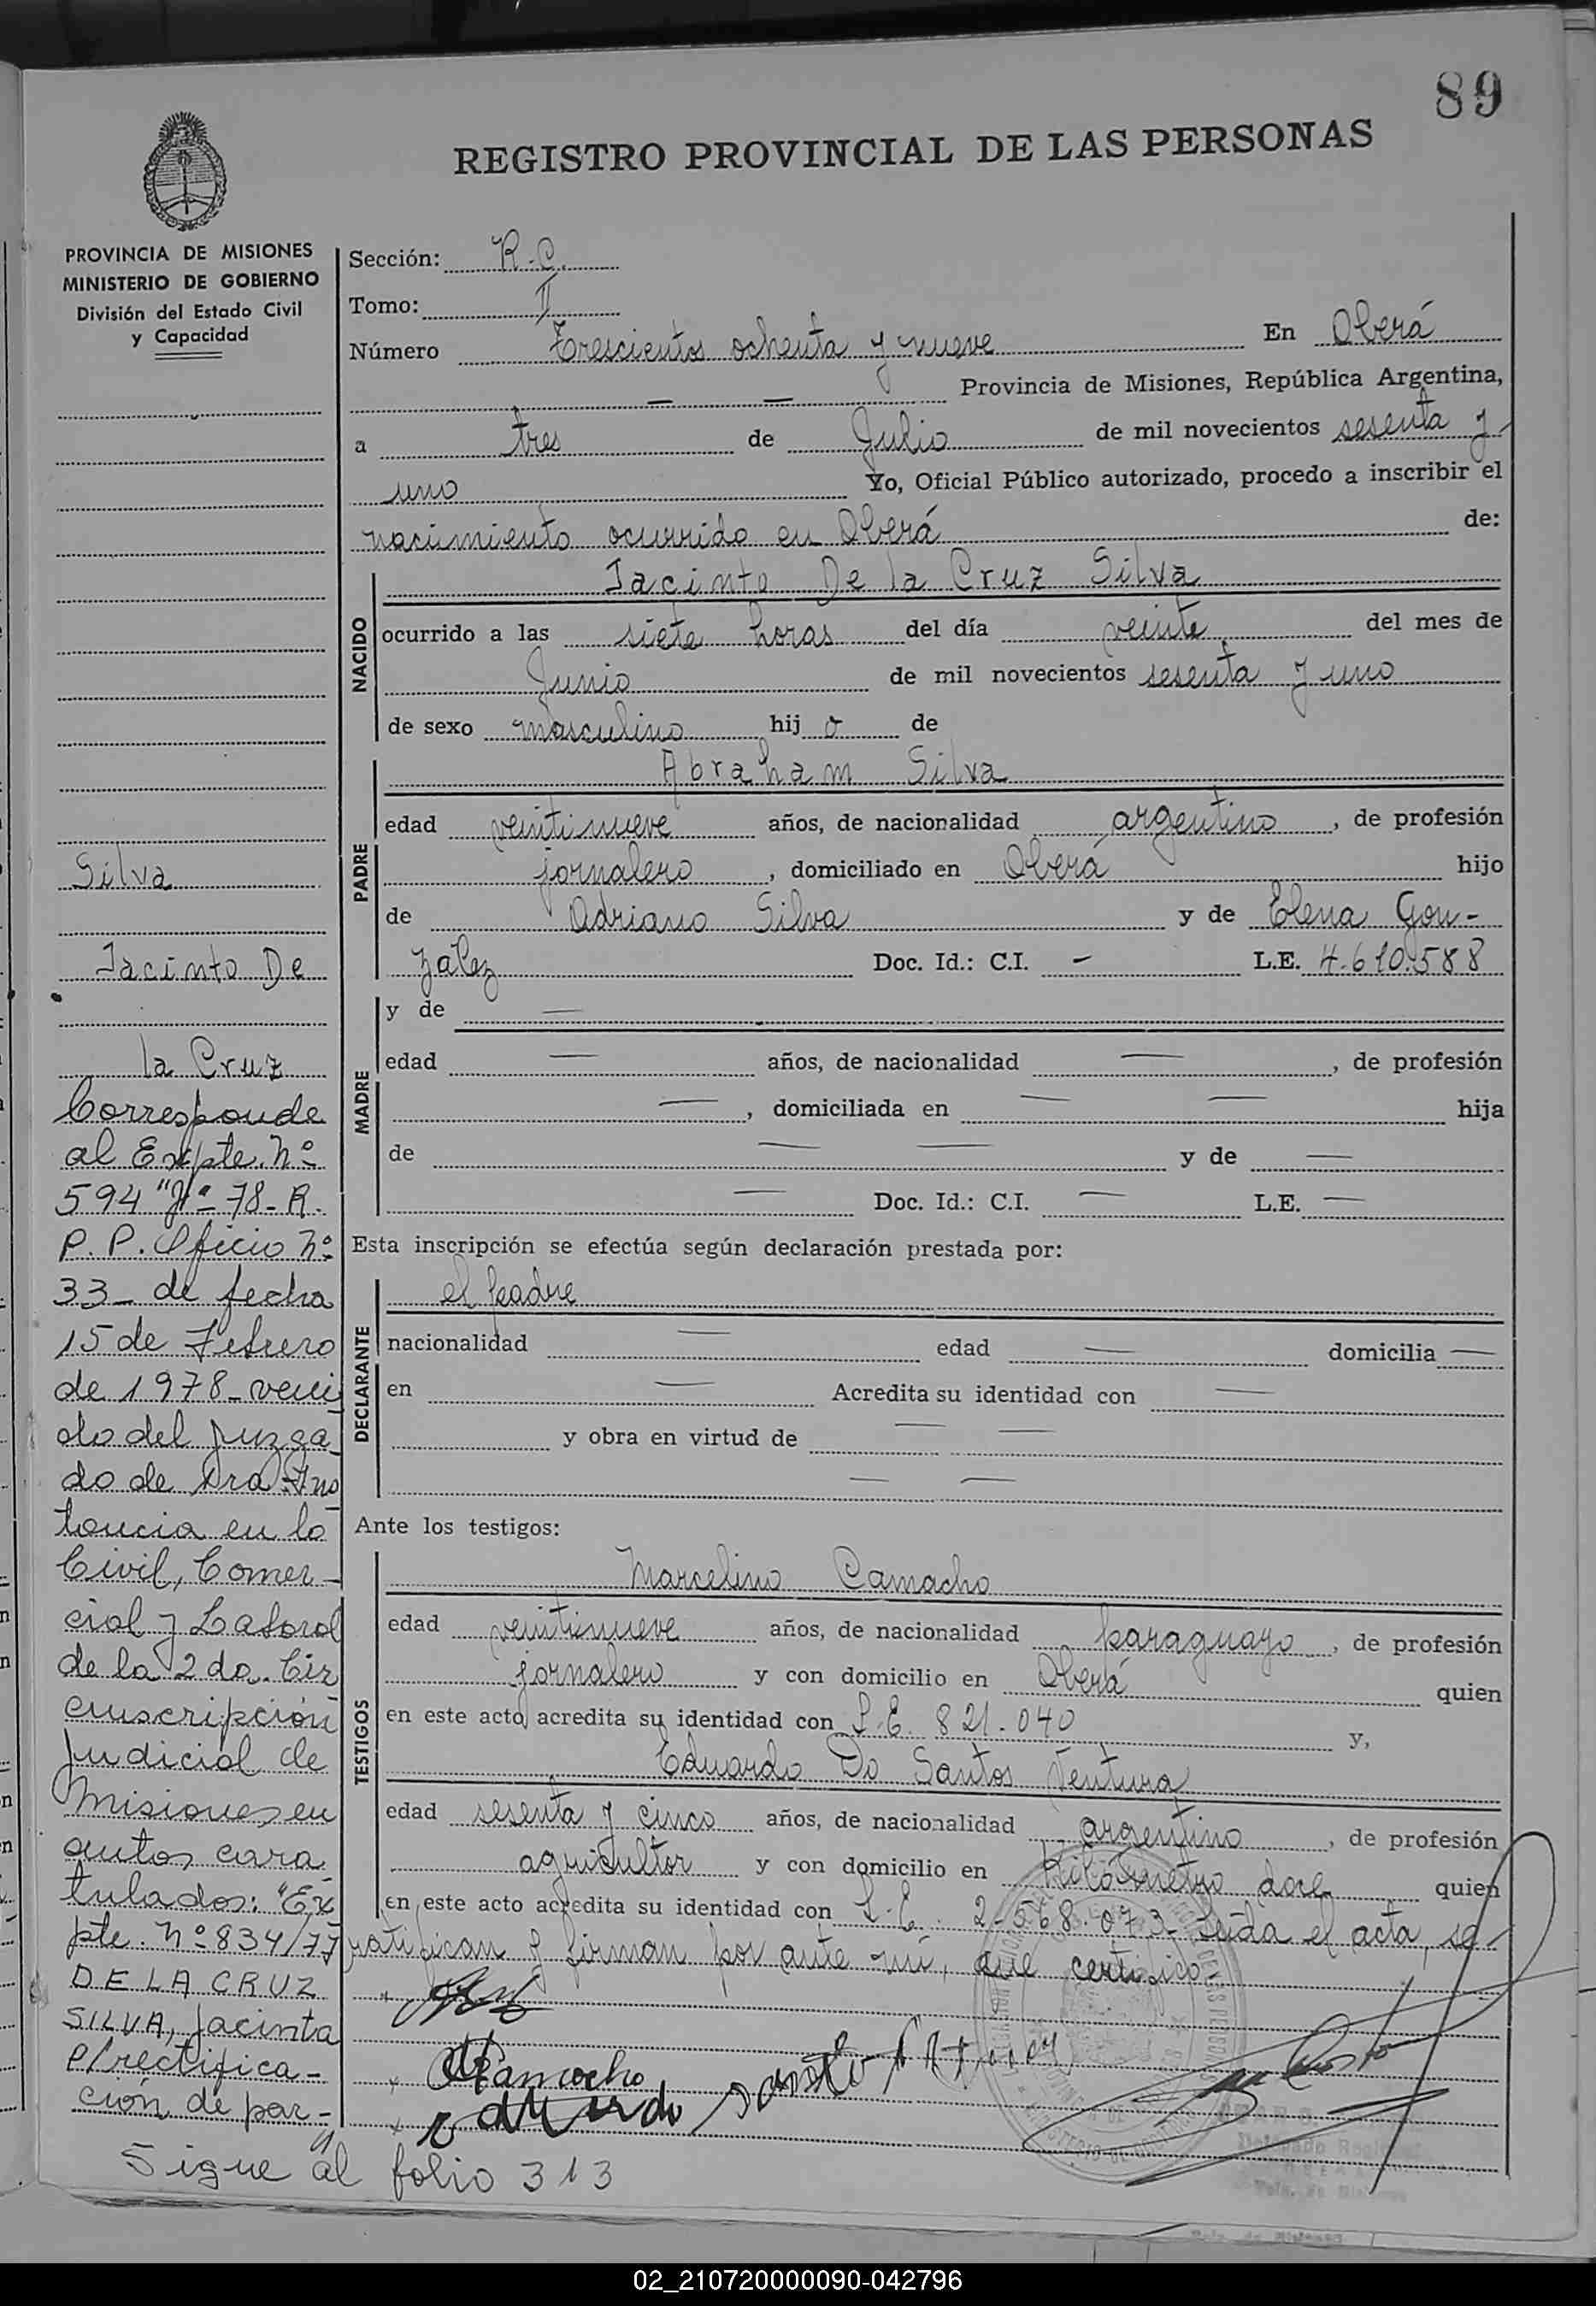 89
REGISTRO PROVINCIAL DE LAS PERSONAS
PROVINCIA DE MISIONES
MINISTERIO DE GOBIERNO
División del Estado Civil
y Capacidad
Sección: R.C.
Tomo: II
Número Trescientos ochenta y nueve En Oberá
— — Provincia de Misiones, República Argentina,
a tres de Julio de mil novecientos sesenta y
uno Yo, Oficial Público autorizado, procedo a inscribir el
nacimiento ocurrido en Oberá de:
NACIDO
Jacinto De la Cruz Silva
ocurrido a las siete horas del día veinte del mes de
Junio de mil novecientos sesenta y uno
de sexo masculino hij o de
PADRE
Abraham Silva
edad veintinueve años, de nacionalidad argentino, de profesión
jornalero, domiciliado en Oberá hijo
de Adriano Silva y de Elena Gon-
zalez Doc. Id.: C.I. — L.E. 4.610.588
MADRE
y de —
edad — años, de nacionalidad —, de profesión
—, domiciliada en — — hija
de — — y de —
— Doc. Id.: C.I. — L.E. —
Esta inscripción se efectúa según declaración prestada por:
DECLARANTE
el padre
nacionalidad — edad — domicilia —
en — Acredita su identidad con —
y obra en virtud de — —
— —
Ante los testigos:
TESTIGOS
Marcelino Camacho
edad veintinueve años, de nacionalidad paraguayo, de profesión
jornalero y con domicilio en Oberá quien
en este acto acredita su identidad con L.E. 821.040 y,
Eduardo Do Santos Ventura
edad sesenta y cinco años, de nacionalidad argentino, de profesión
agricultor y con domicilio en Kilómetro doce quien
en este acto acredita su identidad con L.E. 2-568.073- Leída el acta, la
ratifican y firman por ante mí, que certifico-
Silva
Jacinto De
la Cruz
Corresponde
al Expte. Nº
594 -78- R.
P. P. Oficio Nº
33- de fecha
15 de Febrero
de 1978- veni
do del Juzga-
do de 1ra. Ins
tancia en lo
Civil, Comer-
cial y Laboral
de la 2da. Cir
cunscripción
Judicial de
Misiones en
autos cara
tulados: "Ex
pte. Nº 834/77
DE LA CRUZ
SILVA, Jacinta
P/rectifica-
ción de par-"
Sigue al folio 313
Camacho
Eduardo santo
02_210720000090-042796